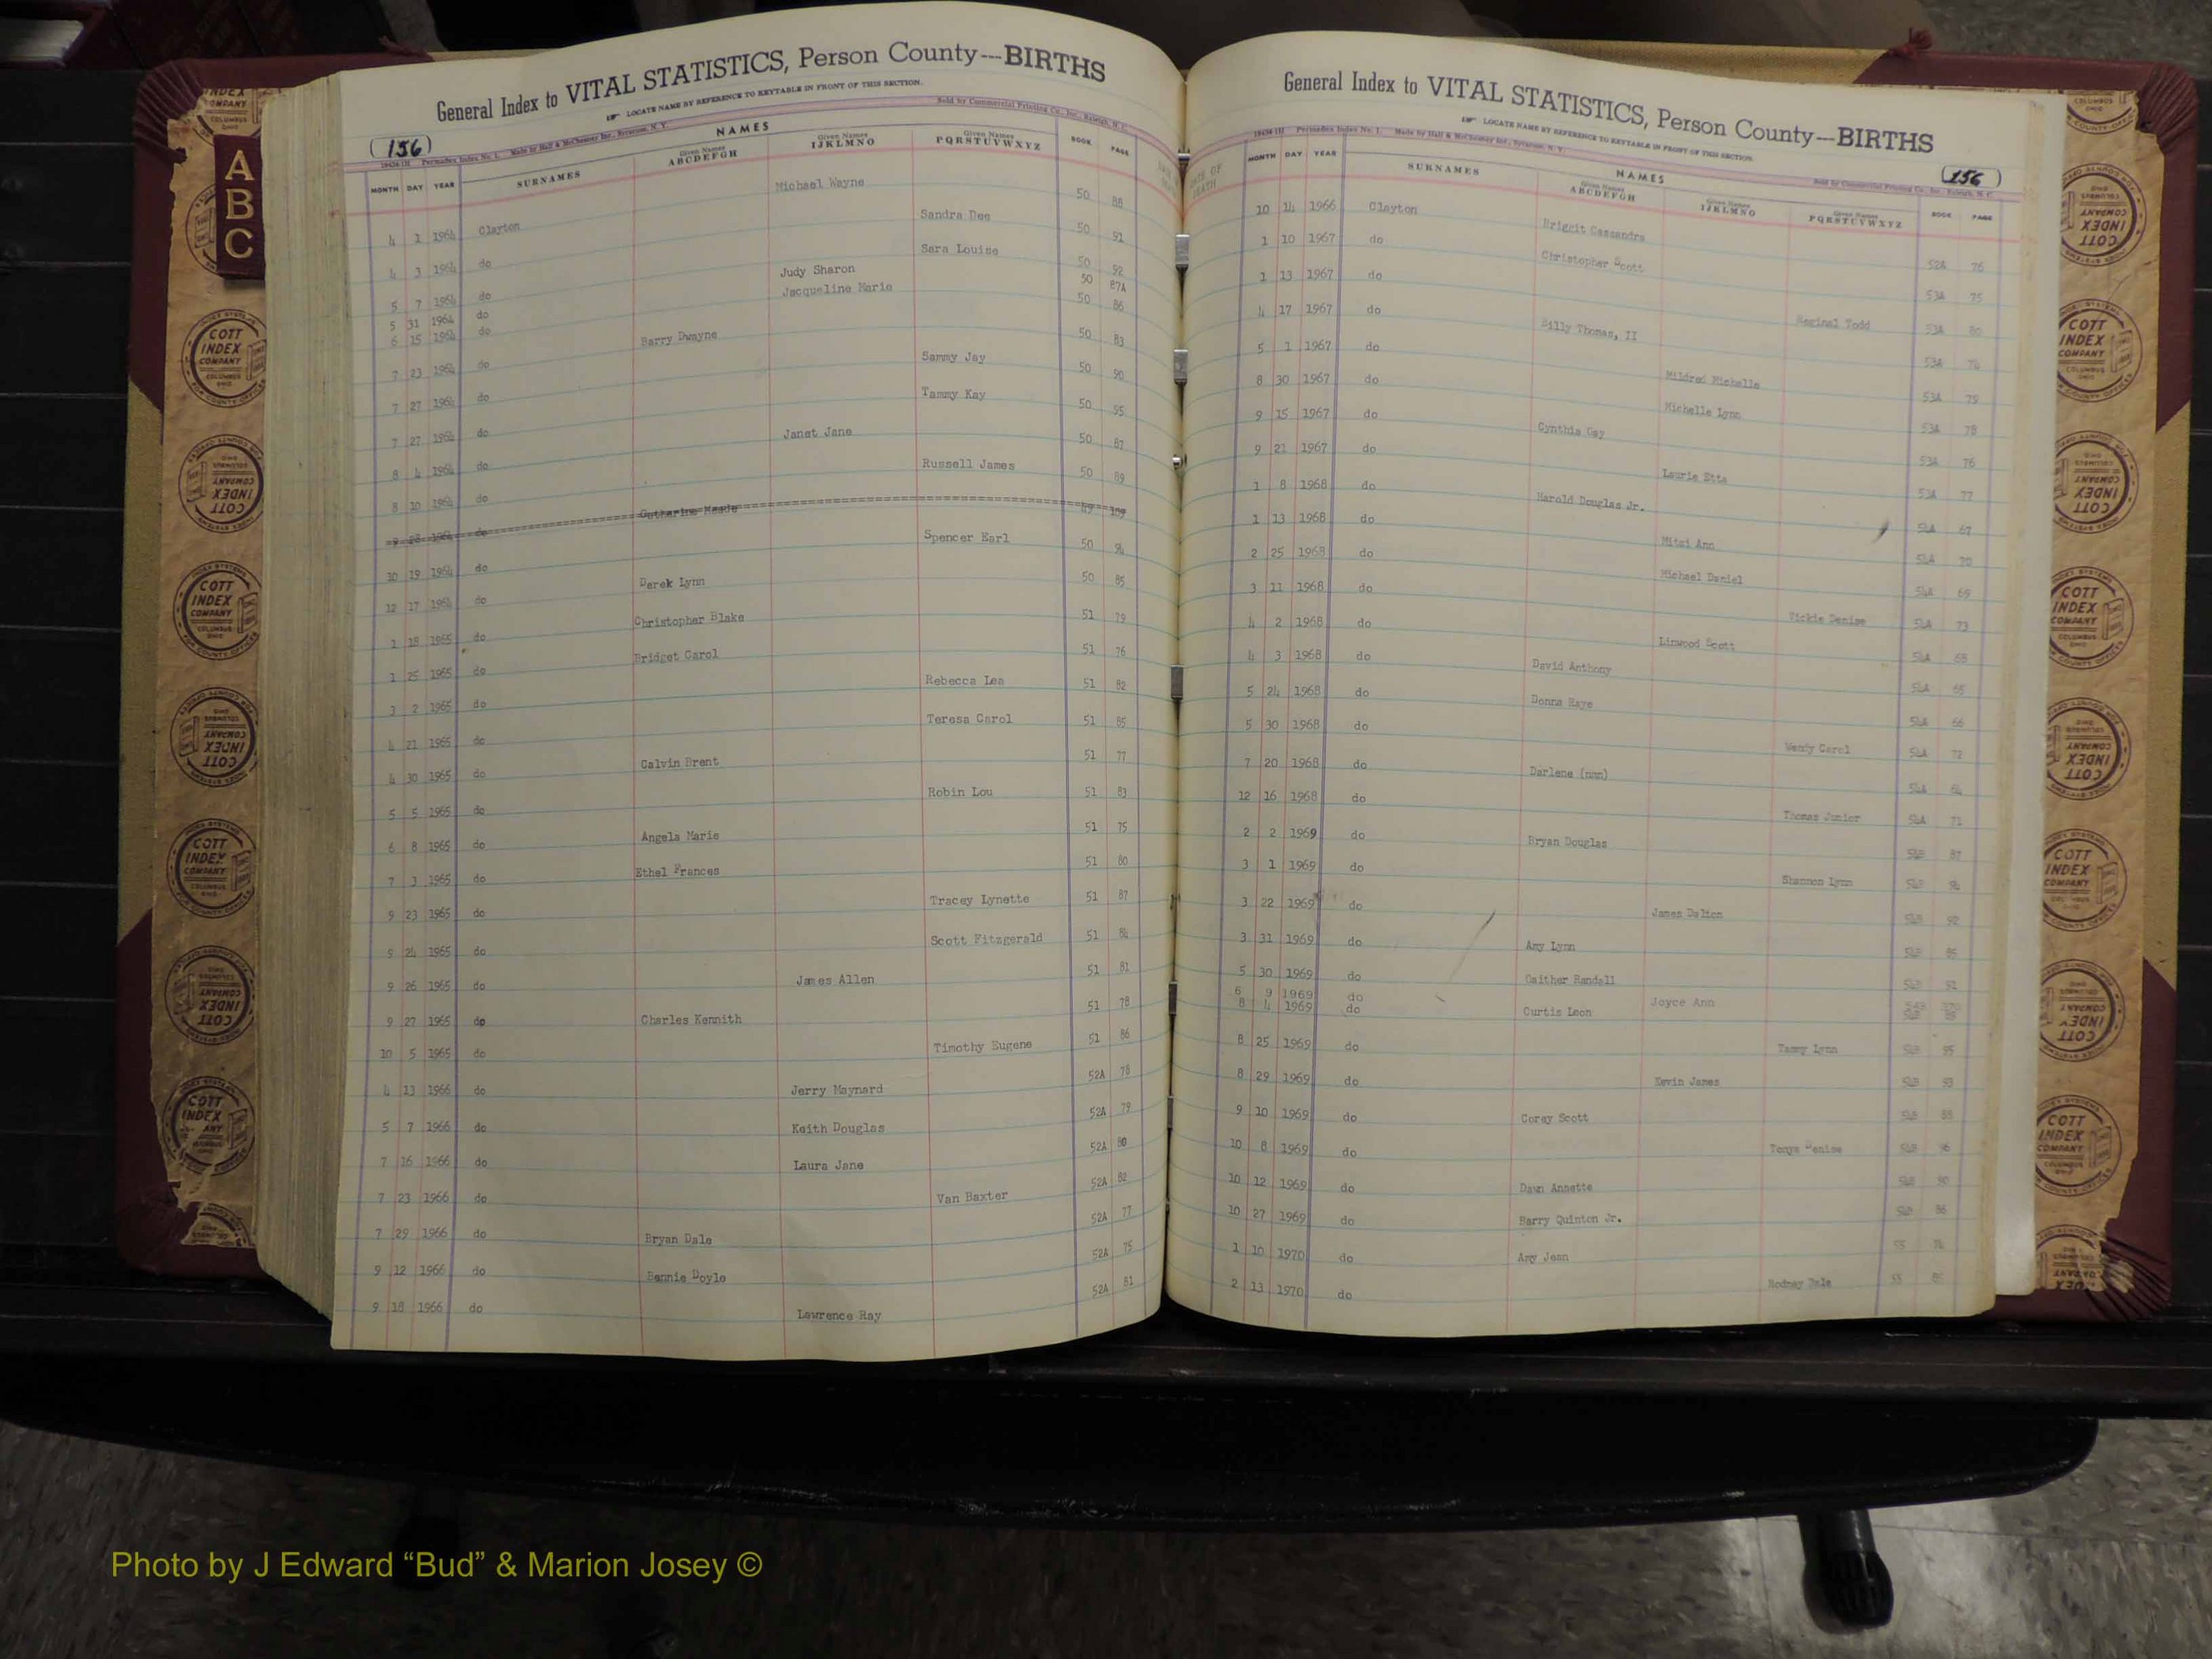 General Index to VITAL STATISTICS, Person County---BIRTHS
LOCATE NAME BY REFERENCE TO KEYTABLE IN FRONT OF THIS SECTION.
Sold by Commercial Printing Co., Inc., Raleigh, N. C.
(156)
Permadex Index No. 1. Made by Hall & McChesney Inc., Syracuse, N. Y.
NAMES
MONTH DAY YEAR SURNAMES Given Names ABCDEFGH Given Names IJKLMNO Given Names PQRSTUVWXYZ BOOK PAGE
4 1 1964 Clayton Michael Wayne 50 88
4 3 1964 do Sandra Dee 50 91
5 7 1964 do Sara Louise 50 92
5 31 1964 do Judy Sharon 50 87A
6 15 1964 do Jacqueline Marie 50 86
7 23 1964 do Barry Dwayne 50 83
7 27 1964 do Sammy Jay 50 90
7 27 1964 do Tammy Kay 50
8 4 1964 do Janet Jane 50 87
8 10 1964 do Russell James 50 89
do Catherine Meade
10 19 1964 do Spencer Earl 50
12 17 1964 do Derek Lynn 50 85
1 18 1965 do Christopher Blake 51 79
1 25 1965 do Bridget Carol 51 76
3 2 1965 do Rebecca Lea 51 82
4 21 1965 do Teresa Carol 51 85
4 30 1965 do Calvin Brent 51 77
5 5 1965 do Robin Lou 51 83
6 8 1965 do Angela Marie 51 75
7 3 1965 do Ethel Frances 51 80
9 23 1965 do Tracey Lynette 51 87
9 24 1965 do Scott Fitzgerald 51 84
9 26 1965 do James Allen 51 81
9 27 1965 do Charles Kennith 51 78
10 5 1965 do Timothy Eugene 51 86
4 13 1966 do Jerry Maynard 52A 78
5 7 1966 do Keith Douglas 52A 79
7 16 1966 do Laura Jane 52A 80
7 23 1966 do Van Baxter 52A 82
7 29 1966 do Bryan Dale 52A 77
9 12 1966 do Bennie Doyle 52A 75
9 18 1966 do Lawrence Ray 52A 81
General Index to VITAL STATISTICS, Person County---BIRTHS
LOCATE NAME BY REFERENCE TO KEYTABLE IN FRONT OF THIS SECTION.
Permadex Index No. 1. Made by Hall & McChesney Inc., Syracuse, N. Y.
(156)
NAMES
Sold by Commercial Printing Co., Inc., Raleigh, N. C.
DATE OF DEATH MONTH DAY YEAR SURNAMES Given Names ABCDEFGH Given Names IJKLMNO Given Names PQRSTUVWXYZ BOOK PAGE
10 14 1966 Clayton Briggit Cassandra 52A 76
1 10 1967 do Christopher Scott 53A 75
1 13 1967 do Reginal Todd 53A 80
4 17 1967 do Billy Thomas, II 53A 74
5 1 1967 do Mildred Michelle 53A 79
8 30 1967 do Michelle Lynn 53A 78
9 15 1967 do Cynthia Gay 53A 76
9 21 1967 do Laurie Etta 53A 77
1 8 1968 do Harold Douglas Jr. 54A 67
1 13 1968 do Mitzi Ann 54A 70
2 25 1968 do Michael Daniel 54A 69
3 11 1968 do Vickie Denise 54A 73
4 2 1968 do Linwood Scott 54A 68
4 3 1968 do David Anthony 54A 65
5 24 1968 do Donna Kaye 54A 66
5 30 1968 do Wendy Carol 54A 72
7 20 1968 do Darlene (nmn) 54A 64
12 16 1968 do Thomas Junior 54A 71
2 2 1969 do Bryan Douglas 54B 87
3 1 1969 do Shannon Lynn 54B 94
3 22 1969 do James Dalton 54B 92
3 31 1969 do Amy Lynn 54B 85
5 30 1969 do Gaither Randall 54B 91
6 9 1969 do Joyce Ann
8 4 1969 do Curtis Leon 54B
8 25 1969 do Tammy Lynn 54B 95
8 29 1969 do Kevin James 54B 93
9 10 1969 do Corey Scott 54B 88
10 8 1969 do Tonya Denise 54B 96
10 12 1969 do Dawn Annette 54B 90
10 27 1969 do Barry Quinton Jr. 54B 86
1 10 1970 do Amy Jean 55 74
2 13 1970 do Rodney Dale 55
A
B
C
COTT INDEX COMPANY COLUMBUS OHIO
Photo by J Edward “Bud” & Marion Josey ©